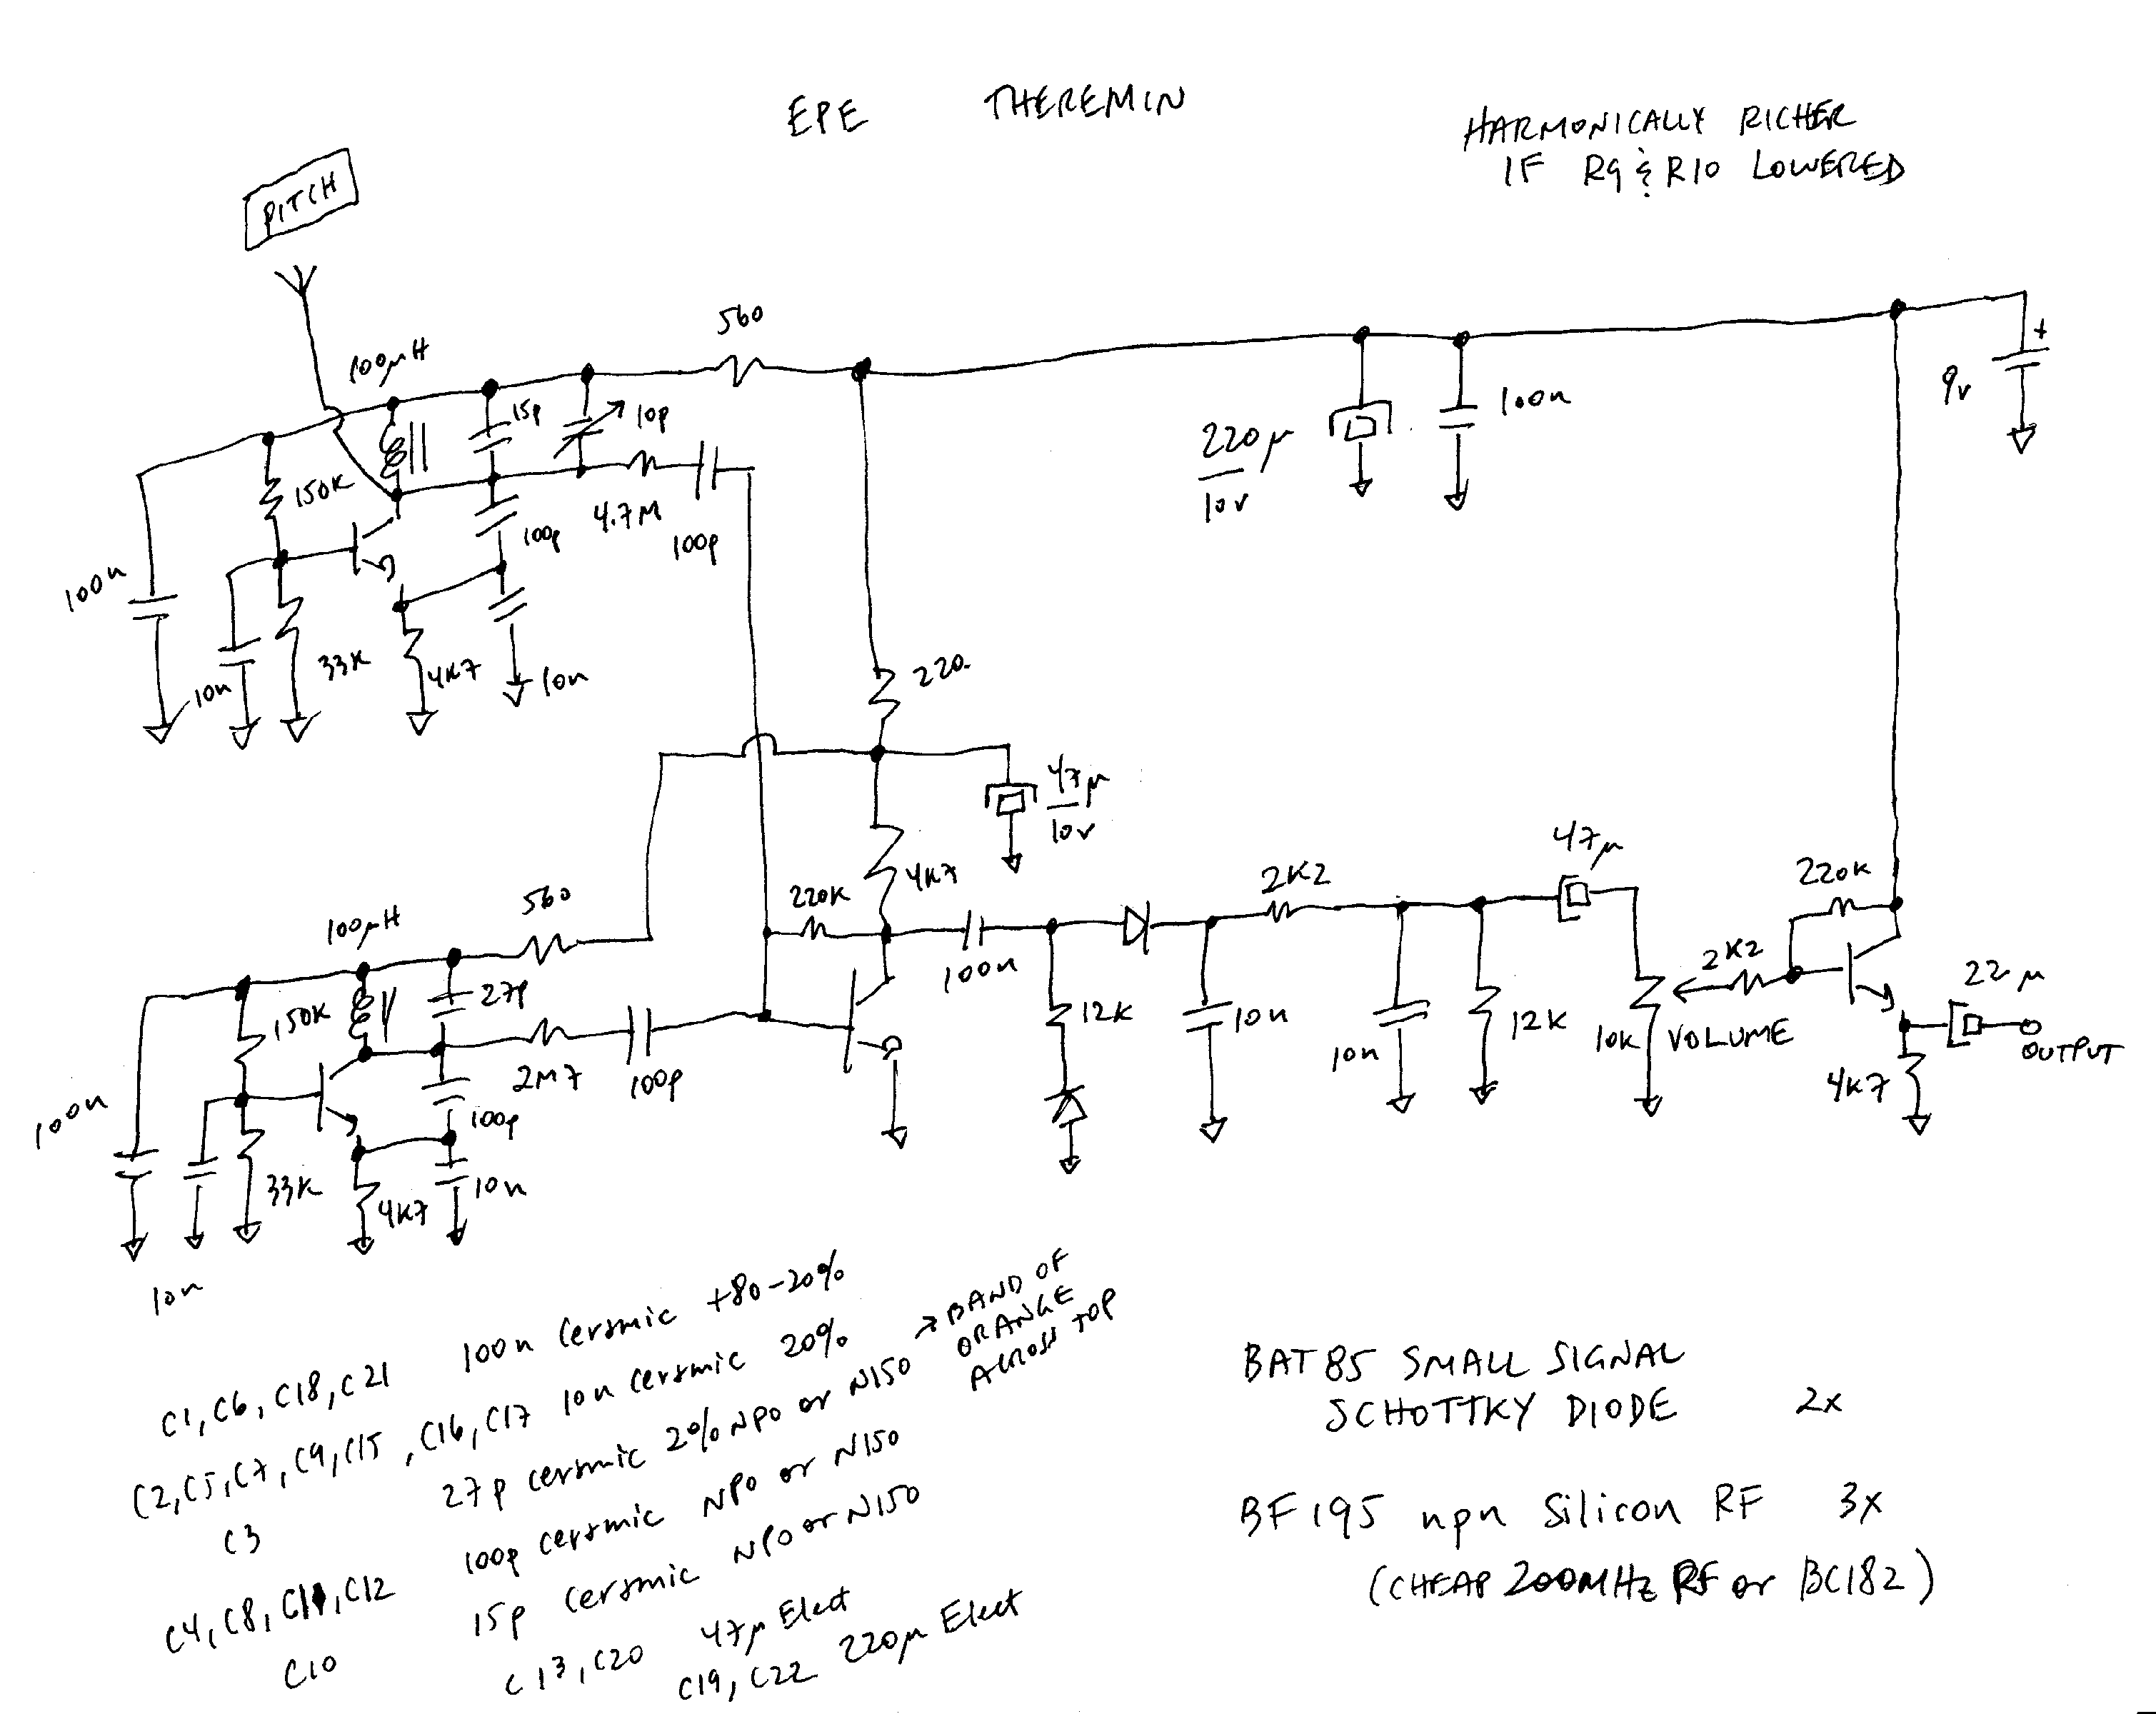 EPE THEREMIN
HARMONICALLY RICHER
IF R9 & R10 LOWERED
PITCH
560
100µH
15p
10p
150K
4.7M
100p
100p
100n
10n
33K
4K7
10n
220µ
10v
100n
+
9v
220
47µ
10v
560
100µH
220K
4K7
27p
150K
2M7
100p
100p
100n
10n
33K
4K7
10n
100n
12K
2K2
10n
10n
12K
47µ
10K VOLUME
2K2
220K
22µ
OUTPUT
4K7
C1, C6, C18, C21 100n Ceramic +80-20%
C2, C5, C7, C9, C15, C16, C17 10n Ceramic 20%
C3 27p ceramic 2% NPO or N150 → BAND OF
ORANGE
ACROSS TOP
C4, C8, C11, C12 100p ceramic NPO or N150
C10 15p ceramic NPO or N150
C13, C20 47µ Elect
C19, C22 220µ Elect
BAT85 SMALL SIGNAL
SCHOTTKY DIODE 2x
BF195 npn Silicon RF 3x
(CHEAP 200MHz RF or BC182)